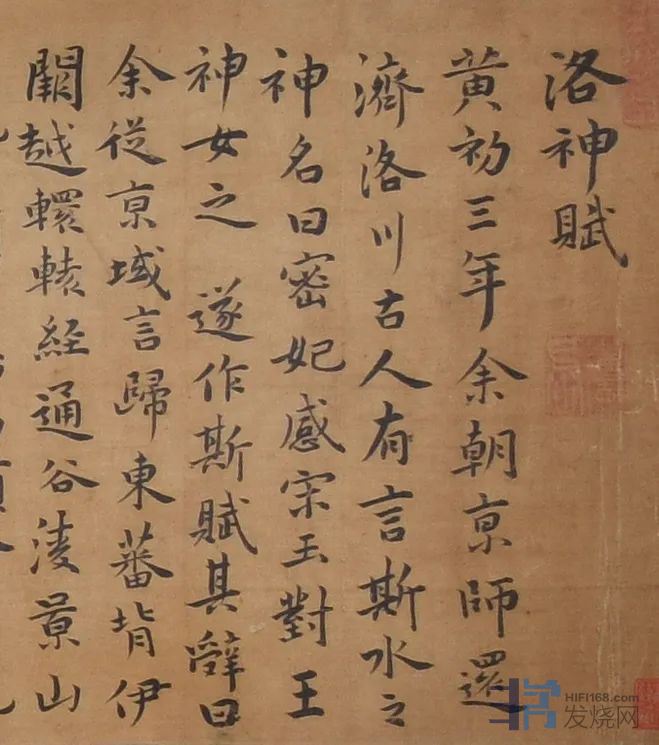 洛神賦
黄初三年余朝京師還
濟洛川古人有言斯水之
神名曰密妃感宗玉對王
神女之 遂作斯賦其辭曰
余從京域言歸東蕃背伊
闕越轘轅經通谷淩景山
HIFI168.com
发烧网